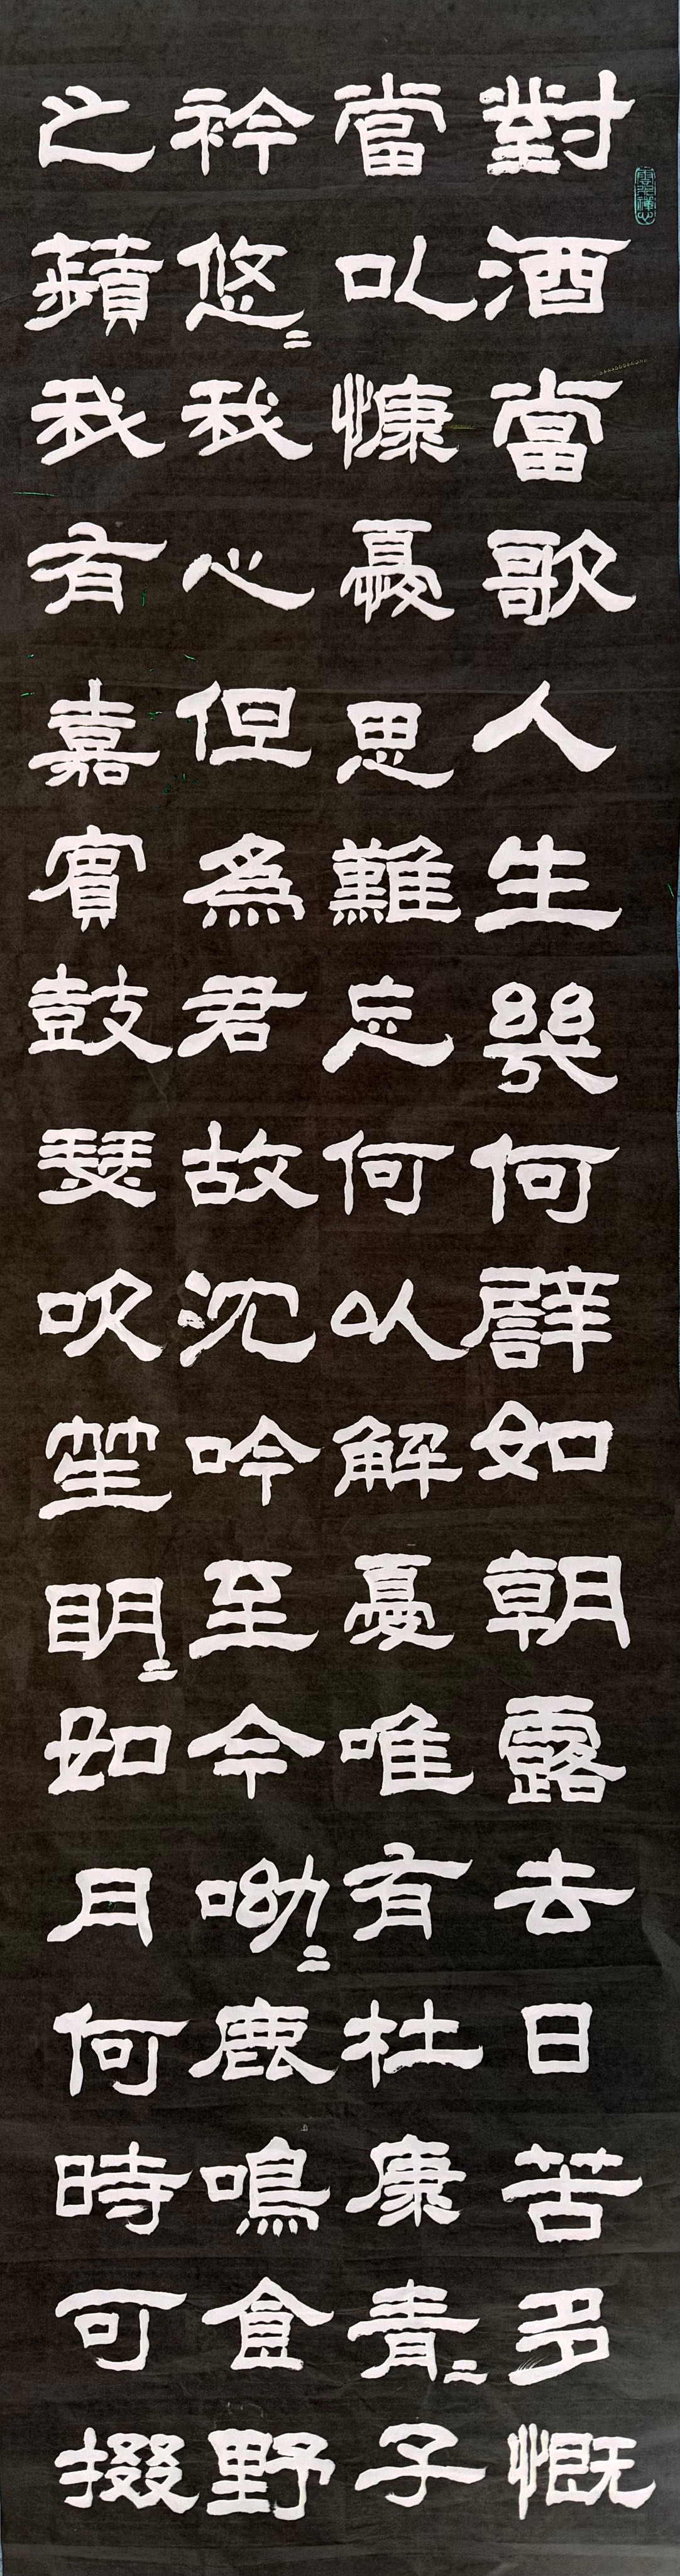 對酒當歌人生幾何譬如朝露去日苦多慨
當以慷憂思難忘何以解憂唯有杜康青〻子
衿悠〻我心但為君故沈吟至今呦〻鹿鳴食野
之蘋我有嘉賓鼓瑟吹笙明〻如月何時可掇